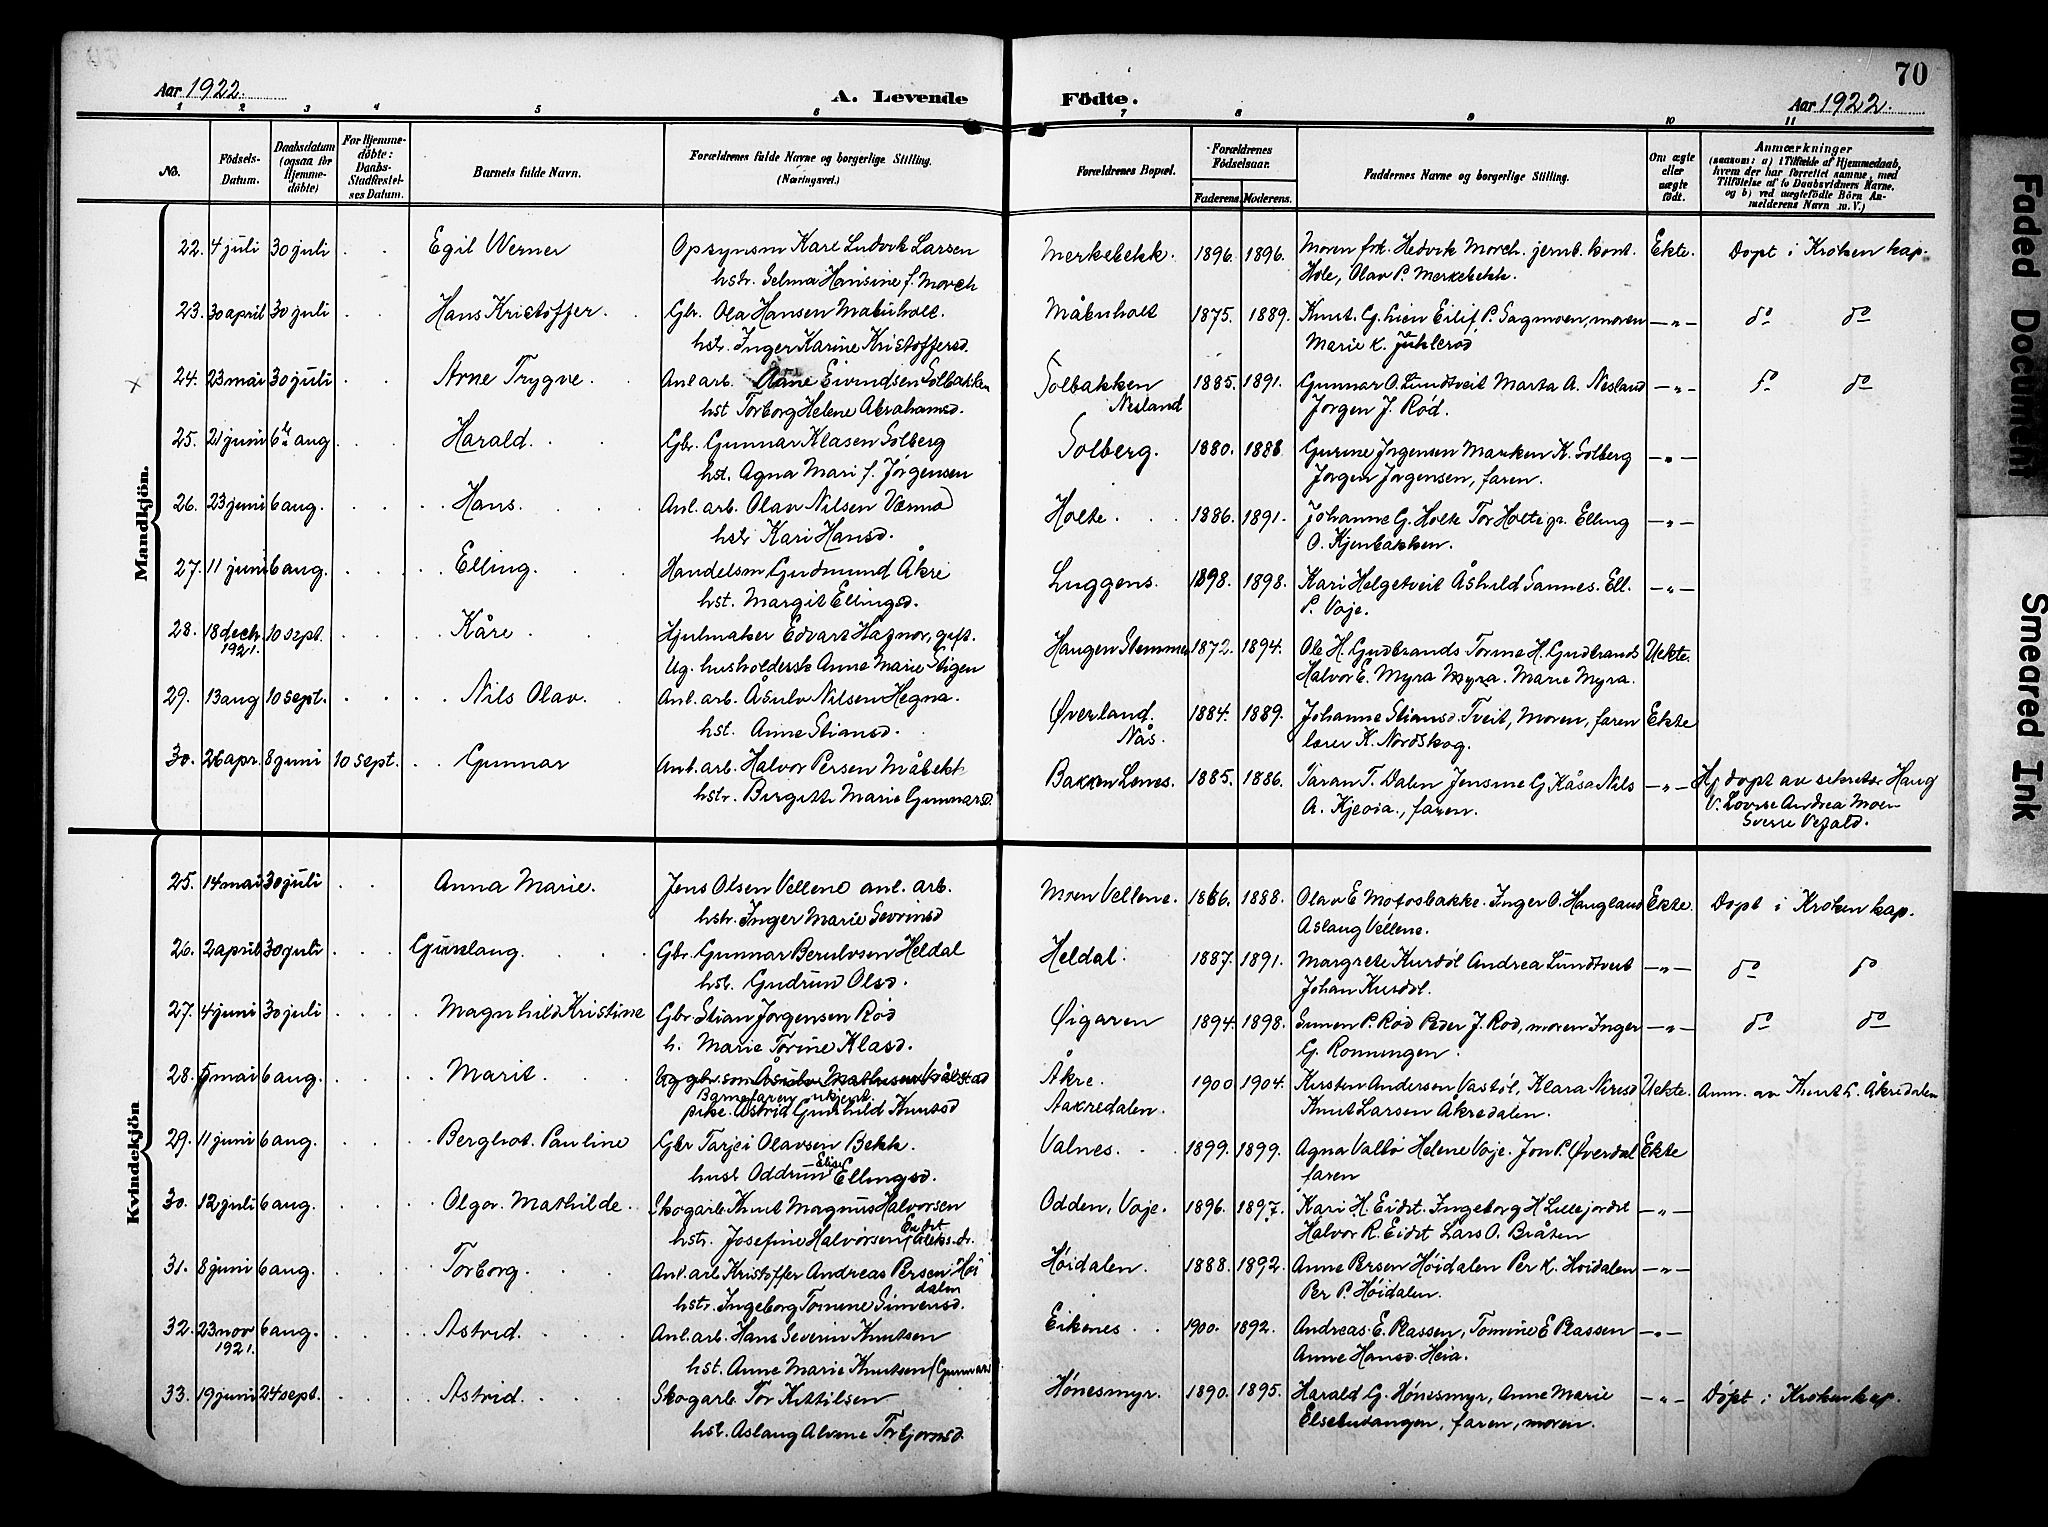 70
Aar 1922.
A. Levende Födte.
Aar 1922.
1 2 3 4 5 6 7 8 9 10 11
No.
Födsels-Datum.
Daabsdatum (ogsaa for Hjemme-døbte)
For Hjemme-døbte: Daabs-Stadfæstel-ses Datum.
Barnets fulde Navn.
Forældrenes fulde Navne og borgerlige Stilling.
(Næringsvei.)
Forældrenes Bopæl.
Forældrenes Födselsaar.
Faderens. Moderens.
Faddernes Navne og borgerlige Stilling.
Om ægte eller uægte født.
Anmærkninger
(saasom: a) i Tilfælde af Hjemmedaab,
hvem der har forrettet samme, med
Tilføielse af to Daabsvidners Navne,
og b) ved uægtefødte Börn An-
melderens Navn m. V.)
Mandkjön.
22. 4 juli 30 juli Egil Werner Opsynsm Karl Ludvik Larsen Merkebekk. 1896. 1896. Moren frk. Hedvik Morch. jernb. kont. Ekte. Døpt i Kroken kap.
hstr. Selma Hansine f. Morch Hole, Olav P. Merkebekk.
23. 30 april 30 juli Hans Kristoffer. Gbr. Ola Hansen Måbuholt. Måbuholt 1875. 1889. Knut. G. Lien Eilif P. Sagmoen, moren —"— do do
hst. Inger Karine Kristoffersd. Marie K. Juhlerød
× 24. 23 mai 30 juli Arne Trygve. Anl. arb. Eivindsen Solbakken Solbakken 1885. 1891. Gunnar O. Lundtveit Marta A. Nesland —"— do do
hst Torborg Helene Abrahamsd. Nesland Jørgen J. Rød.
25. 21 juni 6te aug Harald. Gbr. Gunnar Klasen Solberg Solberg. 1880. 1888 Gurine Jørgensen Marken K. Solberg —"—
hst. Agna Mari f. Jørgensen Jørgen Jørgensen, faren.
26. 23 juni 6 aug. Hans. Anl. arb. Olav Nilsen Holte. 1886. 1891. Johanne G. Holte Tor Holte gr. Elling —"—
hstr Kari Hansd. O. Kjenbakken.
27. 11 juni 6 aug. Elling. Handelsm Gudmund Åkre Luggens. 1898. 1898. Kari Helgetveit Åshild Sannes. Ell. —"—
hst. Margit Ellingsd. P. Voje.
28. 18 dech. 10 sept. Kåre. Hjulmaker Edvart Hagnor, gift. Haugen Stemmen 1872. 1894. Ole H. Gudbrands Torine H. Gudbrands Uekte.
1921. Ug. husholderske Anne Marie Stigen Halvor E. Myra Myra. Marie Myra.
29. 13 aug 10 sept. Nils Olav. Anl. arb. Åsulv Nilsen Hegna. Øverland. 1884. 1889. Johanne Stiansd. Tveit, Moren, faren Ekte
hst. Anne Stiansd. Nås. lærer K. Nordskog.
30. 26 apr. 8 juni 10 sept. Gunnar Anl. arb. Halvor Persen Måbekk Bakken Lønes. 1885. 1886. Taran T. Dalen Jensine G. Kåsa Nils —"— Hj døpt av sekretær Haug
hstr. Birgitte Marie Gunnarsd. A. Kjeoia., faren. V. Lovise Andrea Moen
Sverre Vefald.
Kvindekjön
25. 14 mai 30 juli Anna Marie. Jens Olsen Vellene anl. arb. Moen Vellene. 1866. 1888. Olav E Mofosbakke. Inger O. Haugland Ekte. Døpt i Kroken kap.
hstr. Inger Marie Sevrinsd Aslaug Vellene.
26. 2 april 30 juli Gunlaug. Gbr. Gunnar Berulvsen Heldal Heldal. 1887. 1891. Margrete Kurdøl Andrea Lundtveit —"— do do
hst. Gudrun Olsd. Johan Kurdøl.
27. 4 juni 30 juli Magnhild Kristine Gbr Stian Jørgensen Rød Øigaren 1894. 1898. Simen P. Rød Peder J. Rød, moren Inger —"— do do
h. Marie Torine Klasd. G. Rønningen.
28. 5 mai 6 aug. Marit. Ug gbr. søn Åsulv Mathisen Åkre. 1900 1904. Kirsten Andersen Vastøl, Klara Nirisd Uekte. Anm. av Knut L. Åkredalen
Barnefaren ukjent.
pike. Astrid Gunhild Knutsd Aakredalen. Knut Larsen Åkredalen.
29. 11 juni 6 aug. Bergliot. Pauline Gbr Tarjei Olavsen Bekk. Valnes. 1899. 1899. Agna Valbø Helene Voje. Jon P. Øverdal Ekte
hust Oddrun Elise Ellingsd. faren
30. 12 juli 6 aug. Olgor. Mathilde. Skogarb Knut Magnus Halvorsen Odden, Voje. 1896. 1897. Kari H. Eidst. Ingeborg H. Lillejordet —"—
Eidst
hstr. Josefine Halvorsen f. Aleks.dr. Halvor R. Eidst Lars O. Bråten
31. 8 juni 6 aug. Torborg. Anl. arb Kristoffer Andreas Persen Høi Høidalen. 1888. 1892. Anne Persen Høidalen Per K. Høidalen —"—
dalen
hstr. Ingeborg Tomine Simensd. Per P. Høidalen.
32. 23 nov 6 aug. Astrid. Anl. arb. Hans Severin Knutsen Eikenes 1900. 1892. Andreas. E. Plassen, Tomine E Plassen —"—
1921. hst. Anne Marie Knutsen (Gunnars Anne Hansd. Heia.
33. 19 juni 24 sept. Astrid. Skogarb. Tor Kittilsen Hønesmyr. 1890. 1895. Harald G. Hønesmyr, Anne Marie —"— Døpt i Kroken kap.
hst. Aslaug Alvine Torbjørnsd. faren, moren.
Faded Document
Smeared Ink